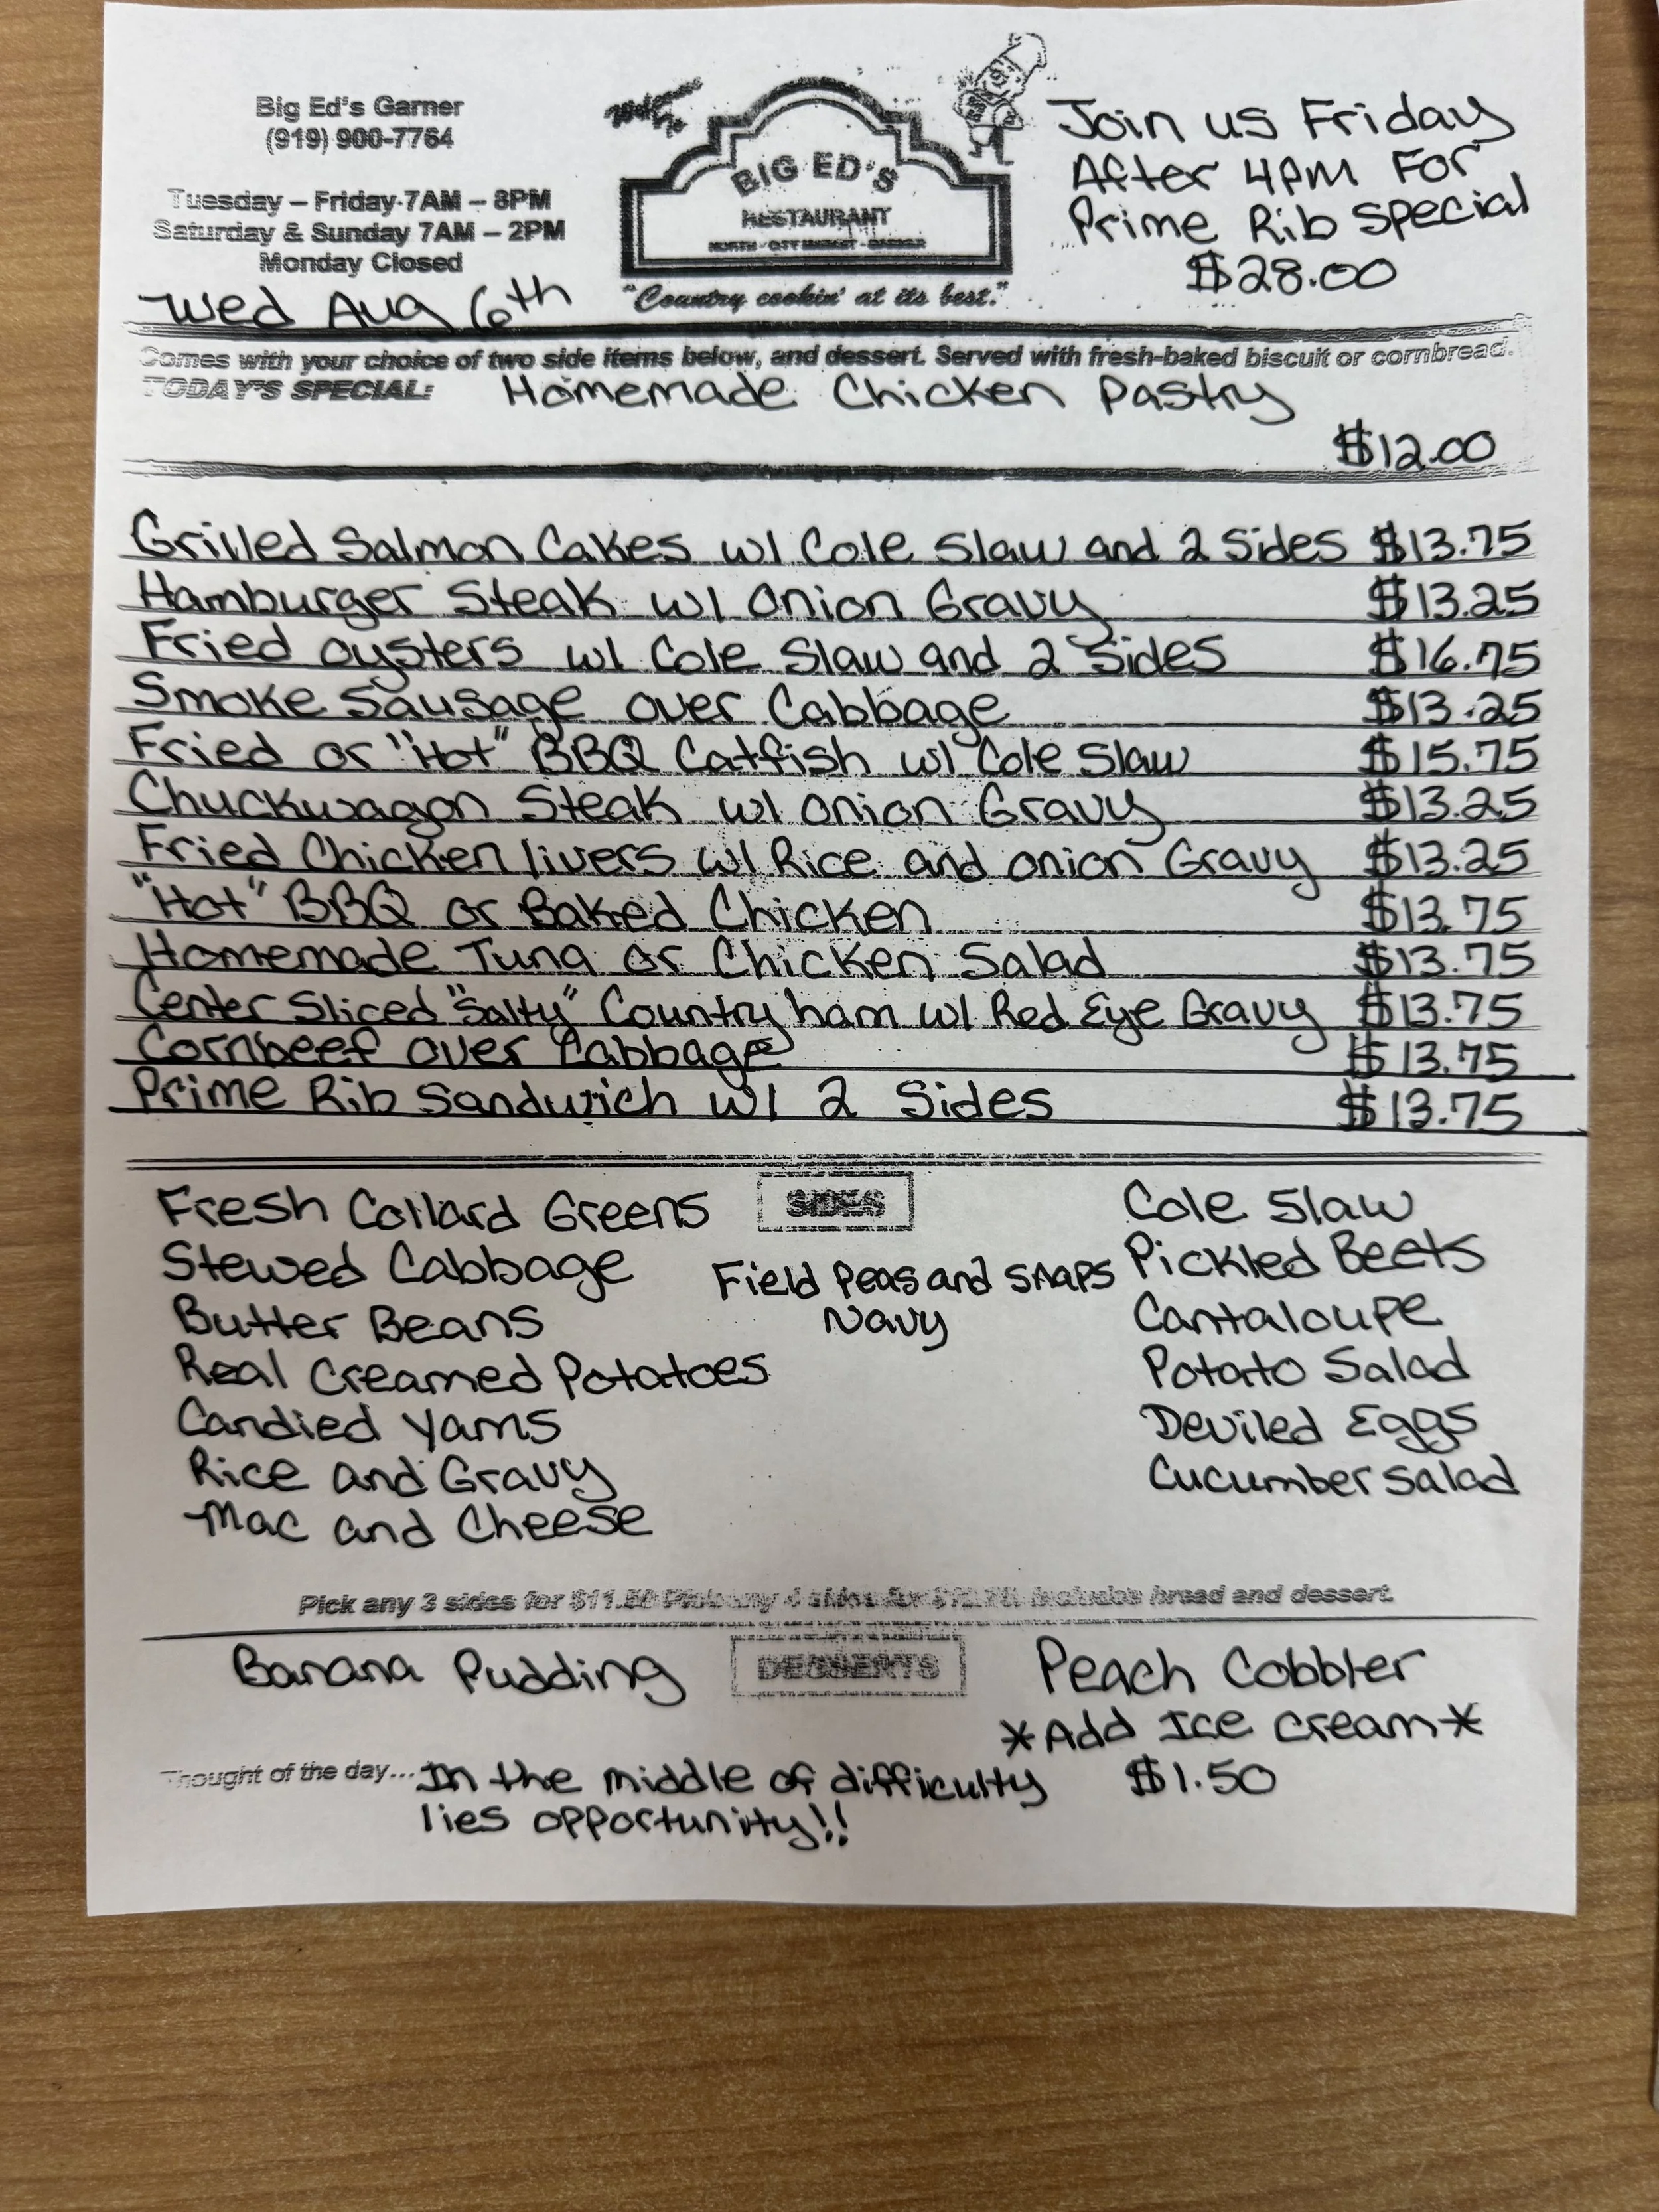 Big Ed's Garner
(919) 900-7764
Tuesday – Friday 7AM – 8PM
Saturday & Sunday 7AM – 2PM
Monday Closed
Wed Aug 6th
BIG ED'S
RESTAURANT
NORTH - CITY MARKET - GARNER
"Country cookin' at its best."
Join us Friday
After 4pm For
Prime Rib Special
$28.00
Comes with your choice of two side items below, and dessert. Served with fresh-baked biscuit or cornbread.
TODAY'S SPECIAL: Homemade Chicken Pastry
$12.00
Grilled Salmon Cakes w/ Cole Slaw and 2 Sides $13.75
Hamburger Steak w/ Onion Gravy $13.25
Fried oysters w/ Cole Slaw and 2 Sides $16.75
Smoke Sausage over Cabbage $13.25
Fried or "Hot" BBQ Catfish w/ Cole Slaw $15.75
Chuckwagon Steak w/ Onion Gravy $13.25
Fried Chicken livers w/ Rice and onion Gravy $13.25
"Hot" BBQ or Baked Chicken $13.75
Homemade Tuna or Chicken Salad $13.75
Center Sliced "Salty" Country ham w/ Red Eye Gravy $13.75
Cornbeef over Cabbage $13.75
Prime Rib Sandwich w/ 2 Sides $13.75
SIDES
Fresh Collard Greens
Stewed Cabbage
Butter Beans
Real Creamed Potatoes
Candied Yams
Rice and Gravy
Mac and Cheese
Field Peas and Snaps
Navy
Cole Slaw
Pickled Beets
Cantaloupe
Potato Salad
Deviled Eggs
Cucumber Salad
Pick any 3 sides for Pick any 4 sides for includes bread and dessert.
DESSERTS
Banana Pudding
Peach Cobbler
*Add Ice Cream*
$1.50
Thought of the day... In the middle of difficulty
lies opportunity!!